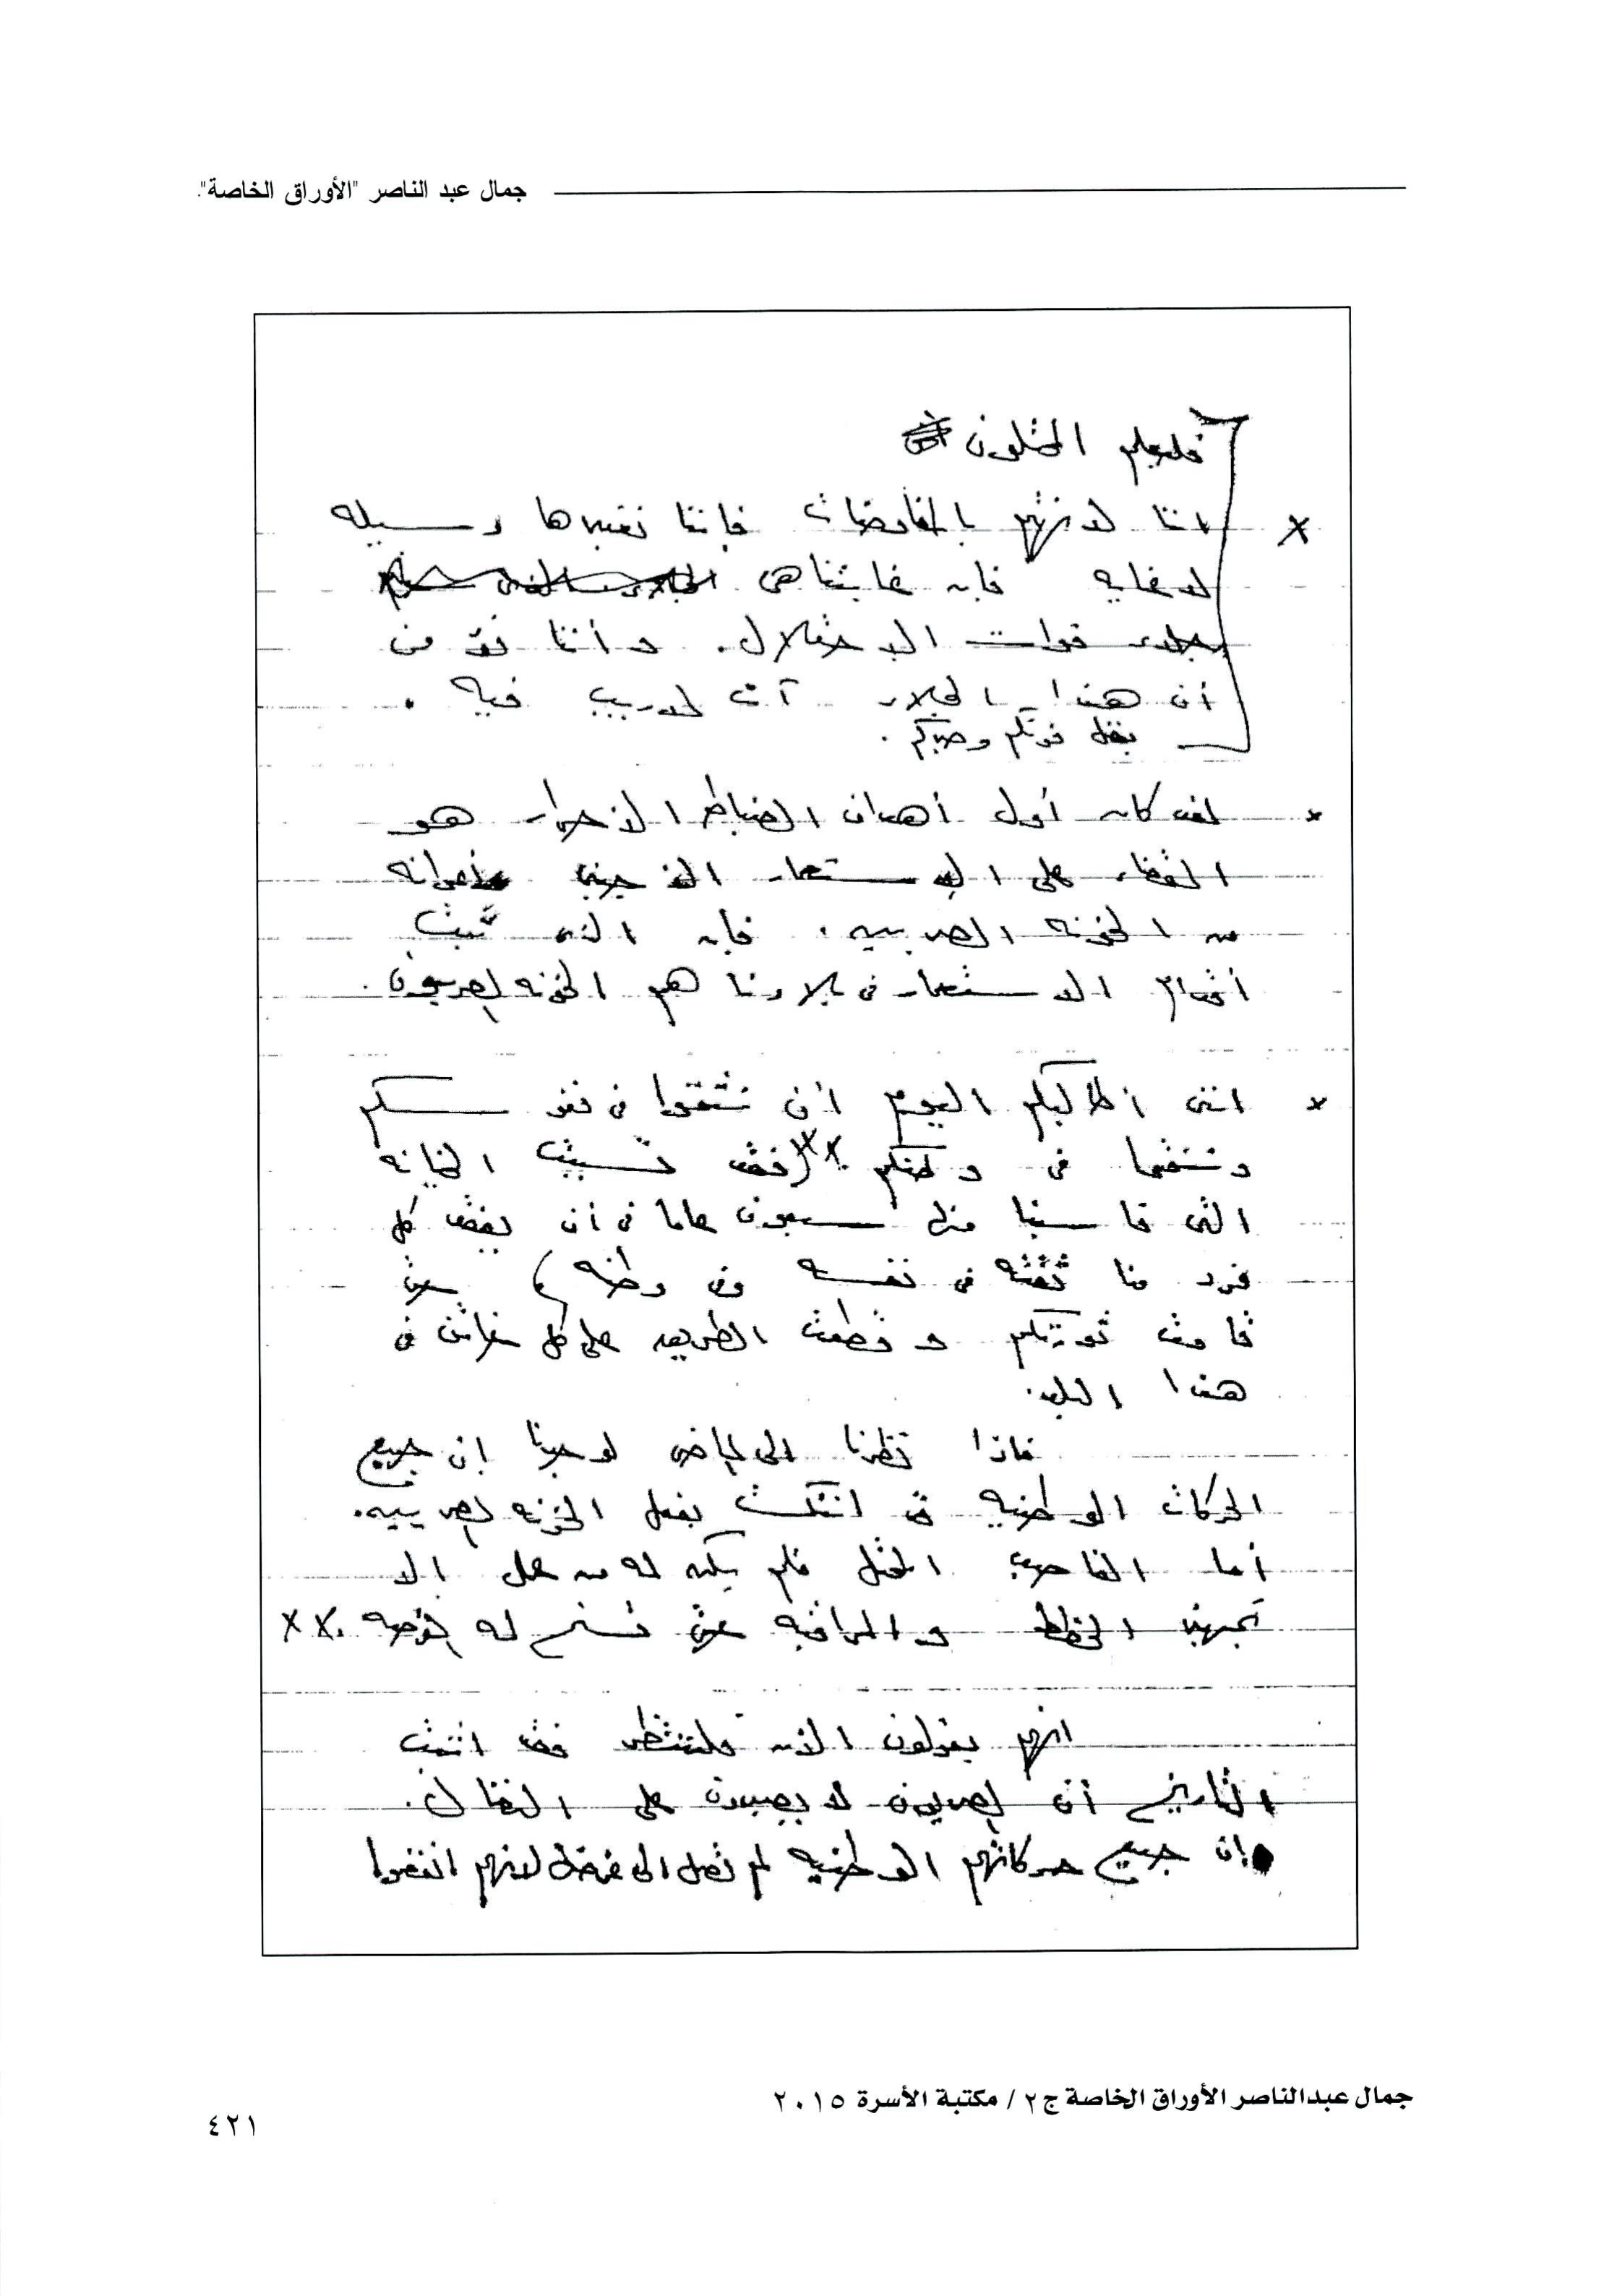 جمال عبد الناصر "الأوراق الخاصة".
فليعلم المحتلون
x اننا لا نهتم بالمفاوضات فاننا نعتبرها وسيله
لا غايه فان غايتنا هى
جلاء قوات الاحتلال. و أننا نؤمن
أن هذا الجلاء آت لا ريب فيه .
بفضل قوتكم وصبركم .
x لقد كان أول أهداف الضباط الاحرار هو
القضاء على الاستعمار الاجنبى وأعوانه
من الخونه المصريين . فان الذى ثبت
أقدام الاستعمار فى بلادنا هم الخونه المصريون .
x اننى أطالبكم اليوم أن تثقوا فى نفوسكم
وتثقوا فى وطنكم xx (فقد تسببت الخيانه
التى قاسينا منها سبعون عاما فى أن يفقد كل
فرد منا ثقته فى نفسه وفى وطنه) حتى
قامت ثورتكم و قطعت الطريق على كل خائن فى
هذا البلد .
فاذا نظرنا الى الماضى لوجدنا ان جميع
الحركات الوطنيه قد انتكست بفعل الخونه المصريين .
أما الغاصب المحتل فلم يكن له من عمل الا
تجهيز الخطط و المراقبه حتى تسنح له الفرصه . xx
انهم يقولون الان فلننتظر فقد اثبت
التاريخ أن المصريون لا يصبرون على النضال .
وان جميع حركاتهم الوطنيه لم تصل الى غرضها لانهم انفضوا
جمال عبدالناصر الأوراق الخاصة ج٢ / مكتبة الأسرة ٢٠١٥
٤٢١